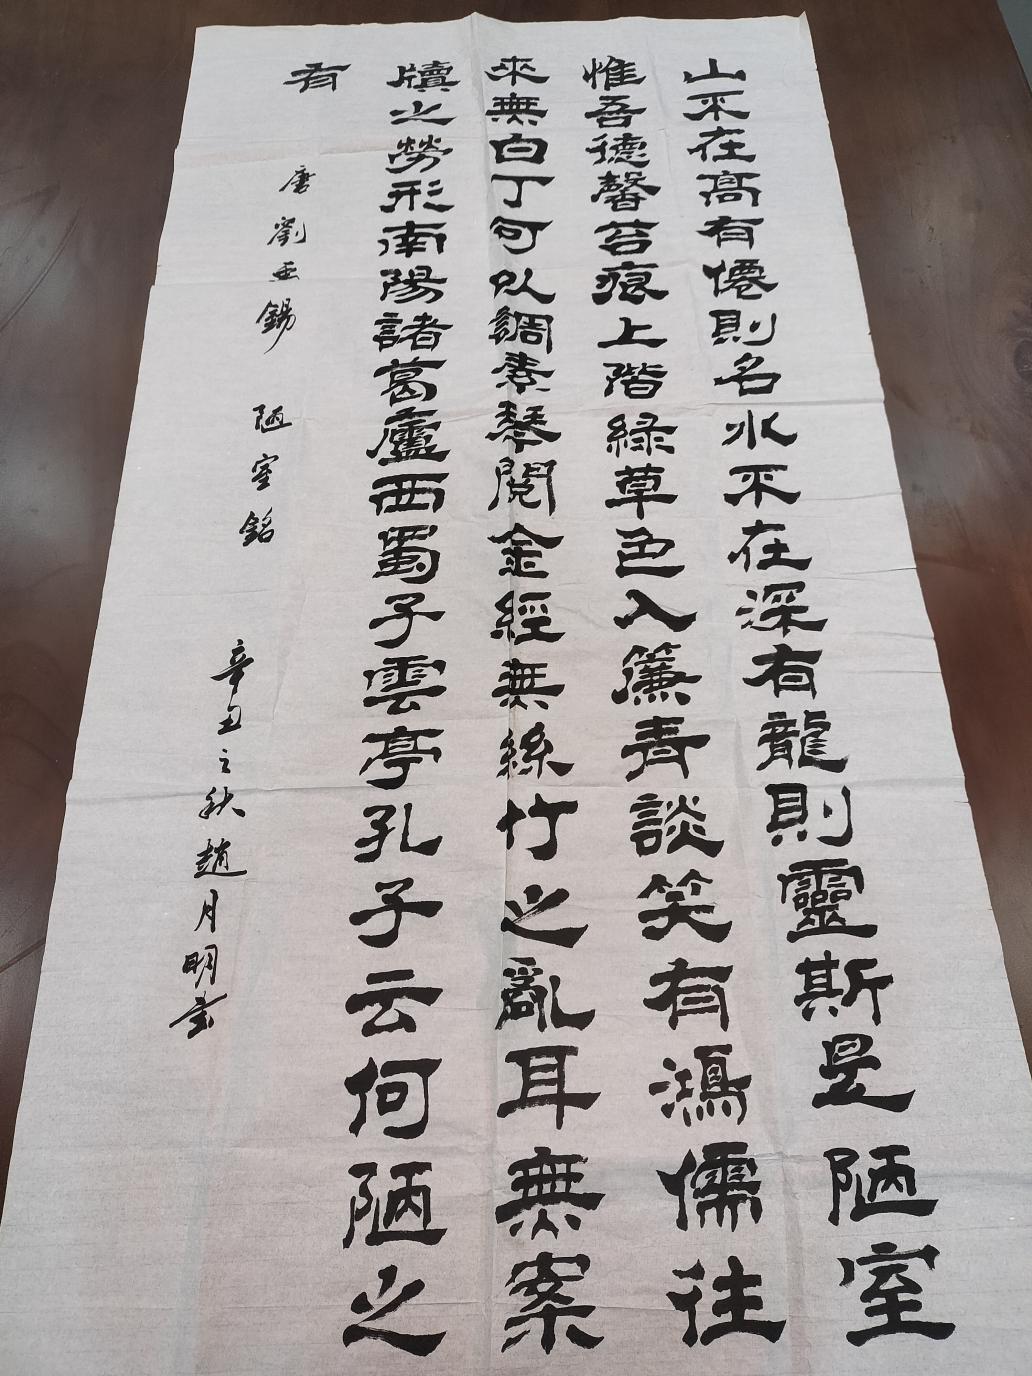 山不在高有僊則名水不在深有龍則靈斯是陋室
惟吾德馨苔痕上階綠草色入簾青談笑有鴻儒往
來無白丁可以調素琴閱金經無絲竹之亂耳無案
牘之勞形南陽諸葛廬西蜀子雲亭孔子云何陋之
有
唐劉禹錫 陋室銘
辛丑之秋趙月明書